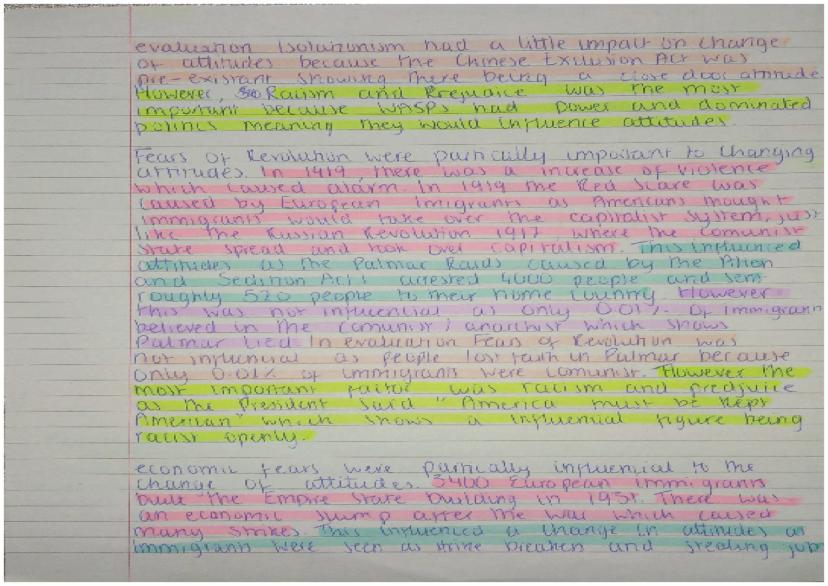 evaluation Isolaizonism had a little impact on change
of attitudes because the Chinese Exclusion Act was
pre-existant showing there being a close door attitude.
However, Racism and Prejudice was the most
important because WASPs had power and dominated
politics meaning they would influence attitudes.
Fears of Revolution were partically important to changing
attitudes. In 1919, there was a increase of violence
which caused alarm. In 1919 the Red Scare was
caused by European imigrants as Americans thought
immigrants would take over the capitalist system, just
like the Russian Revolution 1917 where the comunist
state spread and took over capitalism. This influenced
attitudes as the Palmar Raids caused by the Alien
and Sedition Acts arrested 4000 people and sent
roughly 520 people to their home country. However
this was not influencial as only 0.01% of immigrants
believed in the comunist / anarchist which shows
Palmar lied. In evaluation Fears of Revolution was
not influencial as people lost faith in Palmar because
only 0.01% of immigrants were comunist. However the
most important factor was racism and predjuice
as the President said "America must be kept
American" which shows a influencial figure being
racist openly.
economic fears were partically influencial to the
change of attitudes. 3400 European immigrants
built the Empire State building in 1931. There was
an economic slump after the war which caused
many strikes. This influenced a change in attitudes as
immigrants were seen as strike breakers and stealing jobs